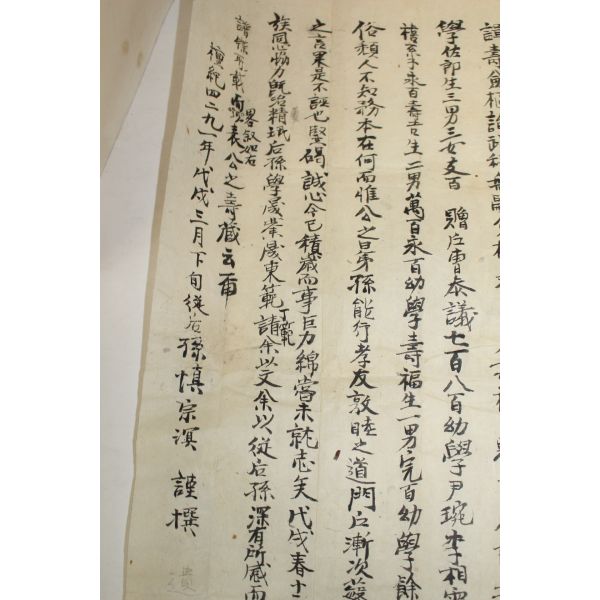 諱壽
學佐郎生三男三女支百 贈戶曹叅議七百八百幼學尹琬李相
禧系子永百壽吉生二男萬百永百幼學壽福生一男完百幼學餘
俗類人不知務本在何而惟公之昆弟孫能行孝友敦睦之道門戶漸次
之言果是不誣也竪碣誠心今已積歲而事巨力綿嘗未就志矣戊戌春十
族同心協力旣治精珉后孫學晟業晟東範丁範請余以文余以從后孫深有所感而
譜牒所載略叙如右表公之壽藏云爾
檀紀四二九一年戊戌三月下旬從后孫愼宗淏 謹撰